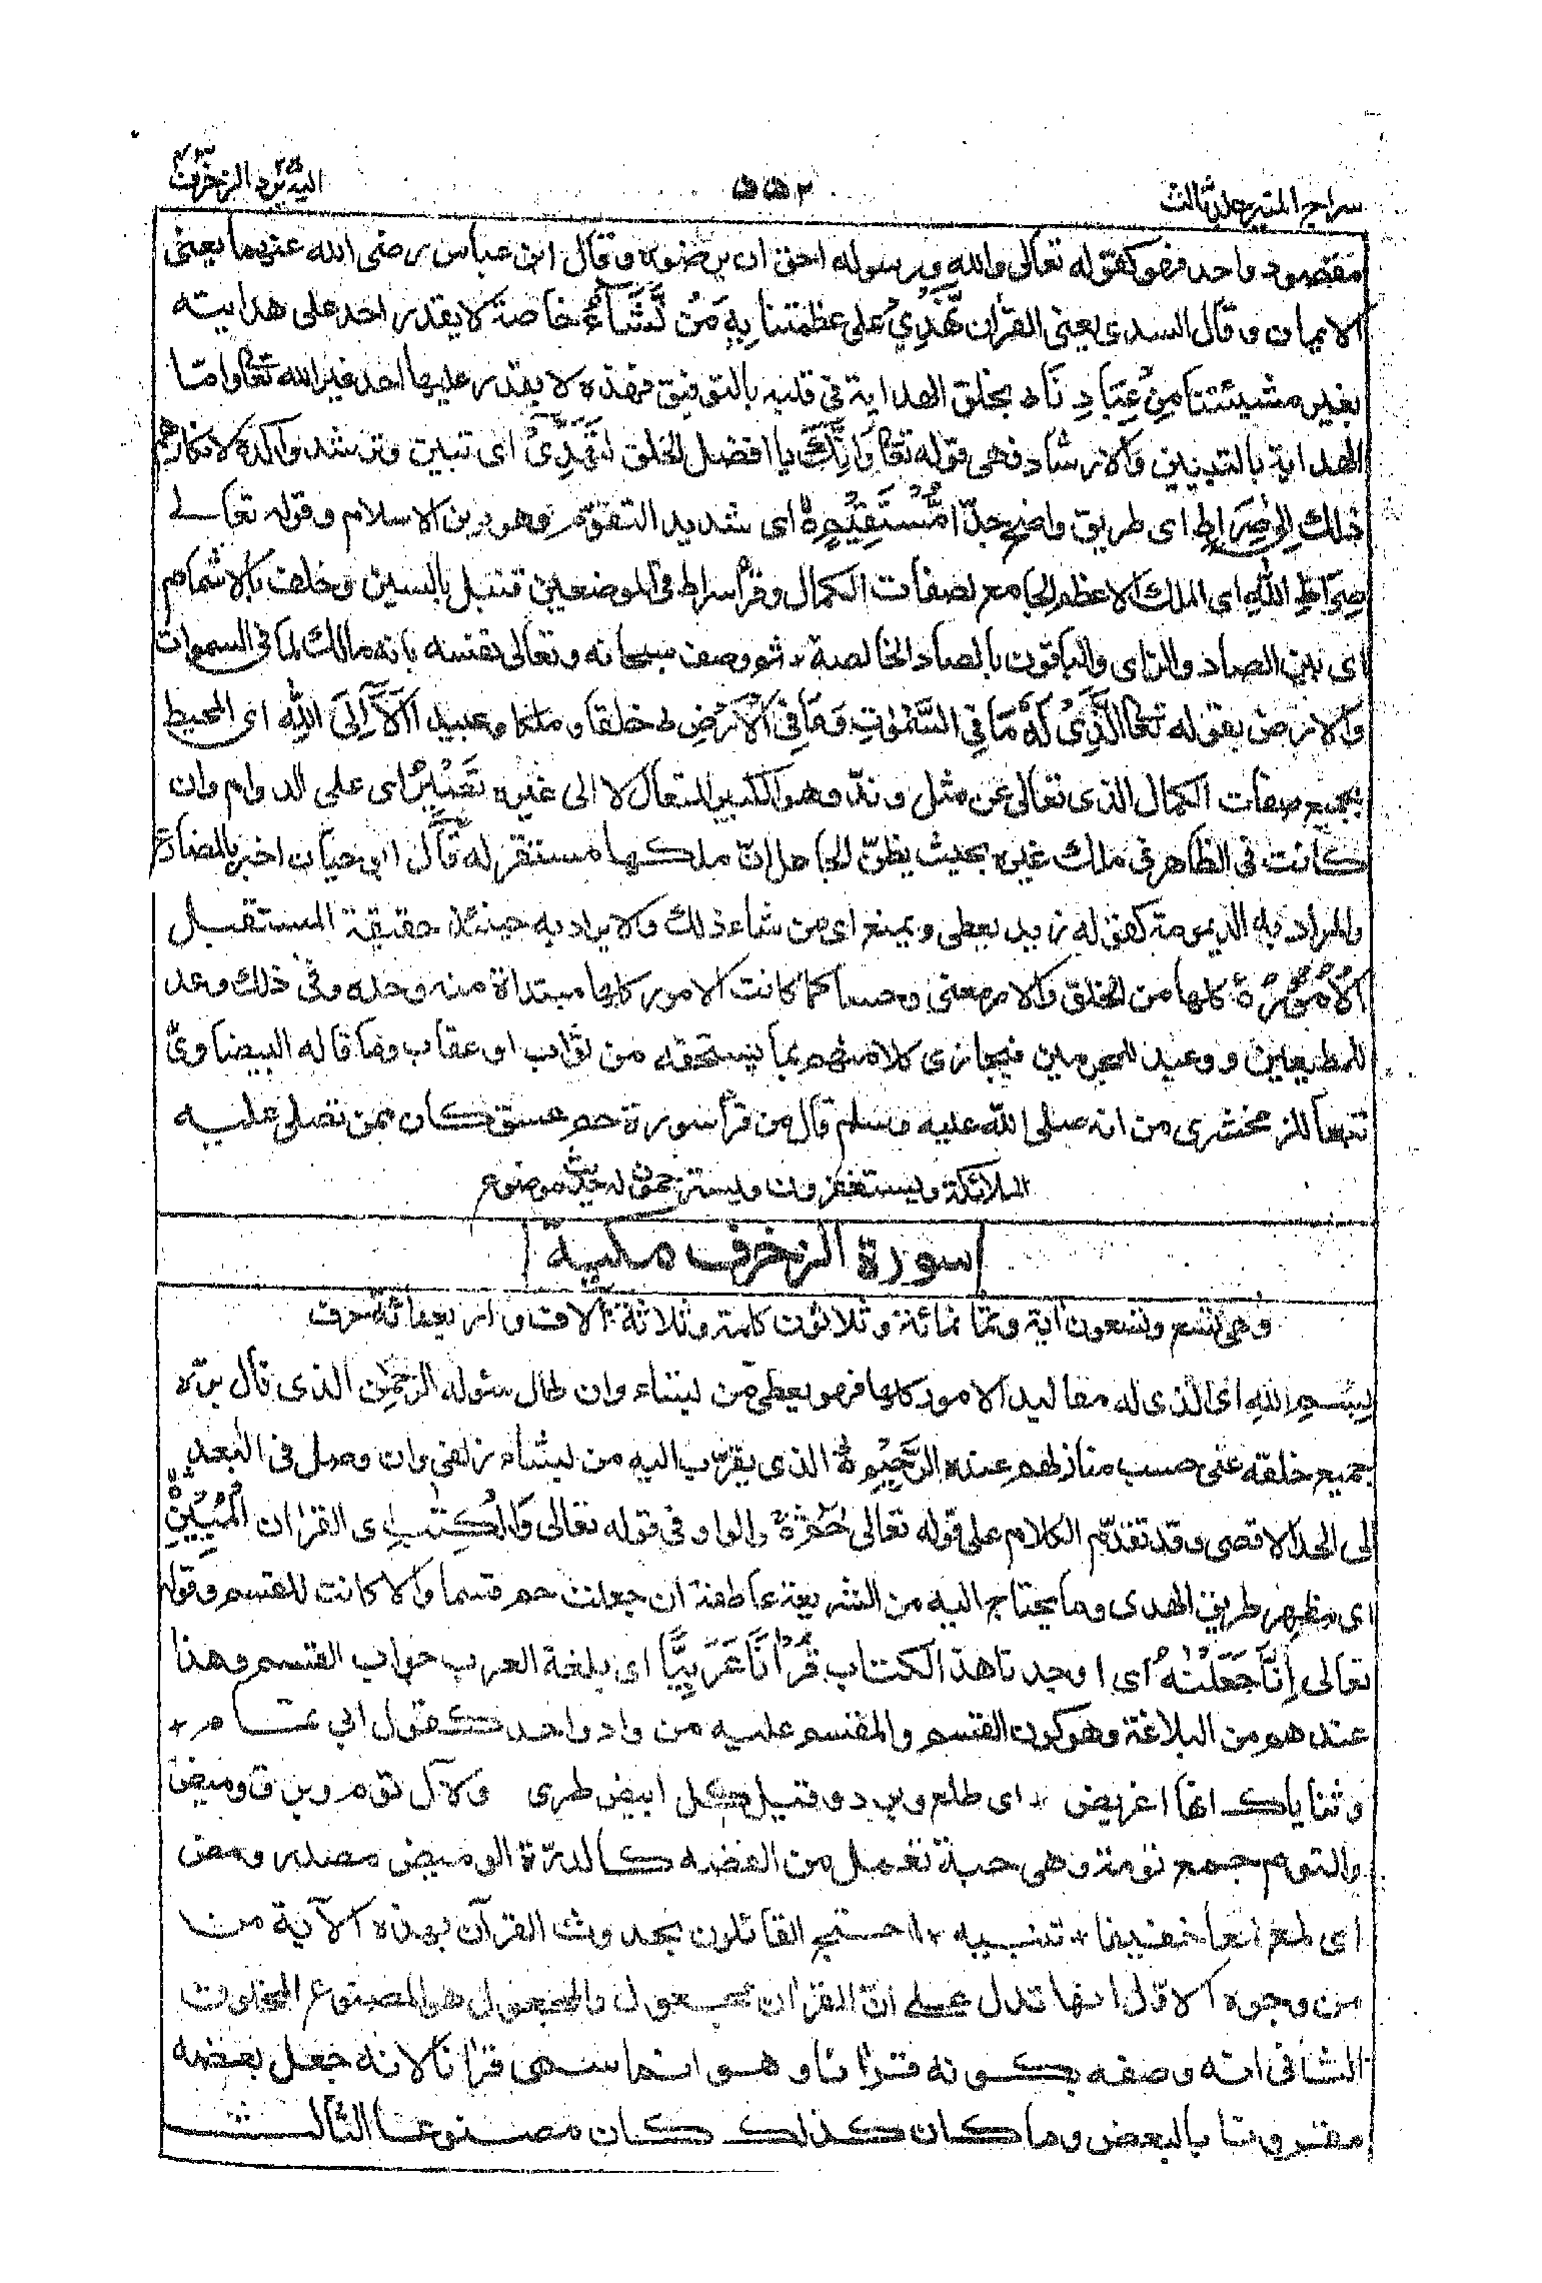 سراج المنير جلد ثالث
٥٥٢
اليه يرد ٢٥ الزخرف ٤٣
مقصود واحد فهو كقوله تعالى والله ورسوله احق ان يرضوه وقال ابن عباس رضى الله عنهما يعنى
الايمان وقال السدى يعنى القرآن نَّهْدِىْ على عظمتنا بِهٖ مَنْ نَّشَآءُ خاصة لا يقدر احد على هدايته
بغير مشيئتنا مِنْ عِبَادِنَا ط بخلق الهداية فى قلبه بالتوفيق فهذه لا يقدر عليها احد غير الله تعالى واما
الهداية بالتبيين والارشاد فهى قوله تعالى وَاِنَّكَ يا افضل الخلق لَتَهْدِىْٓ اى تبين وترشد واكده لانكارهم
ذلك اِلٰى صِرَاطٍ اى طريق واضح جدّا مُّسْتَقِيْمٍ ۙ اى شديد التقوّم وهو دين الاسلام وقوله تعالے
صِرَاطِ اللّٰهِ اى الملك الاعظم الجامع لصفات الكمال وقرأ سراط فى الموضعين قنبل بالسين وخلف بالاشمام
اى بين الصاد والزاى والباقون بالصاد الخالصة ٭ ثم وصف سبحانه وتعالى نفسه بانه مالك لما فى السموات
والارض بقوله تعالى الَّذِىْ لَهٗ مَا فِى السَّمٰوٰتِ وَمَا فِى الْاَرْضِ ط خلقا وملكا وعبيدا اَلَآ اِلَى اللّٰهِ اى المحيط
بجميع صفات الكمال الذى تعالى عن مثل وندّ وهو الكبير المتعال لا الى غيره تَصِيْرُ اى على الدوام وان
كانت فى الظاهر فى ملك غيره بحيث يظنّ الجاهل انّ ملكها مستقر له قال ابو حيان اخبر بالمضارع
والمراد به الديمومة كقوله زيد يعطى ويمنع اى من شانه ذلك ولا يراد به حينئذ حقيقة المستقبل
الْاُمُوْرُ ۠ كلها من الخلق والامر معنى وحسا كما كانت الامور كلها مبتداة منه وحده وفى ذلك وعد
للمطيعين ووعيد للمجرمين فيجازى كلا منهم بما يستحقه من ثواب او عقاب وما قاله البيضاوىّ
تبعا للزمخشرى من انه صلى الله عليه وسلم قال من قرأ سورة حم عسق كان ممن تصلى عليه
الملائكة ويستغفرون ويسترحمون له حديث موضوع
سورة الزخرف مكية
وهى تسع وثمانون آية وثمانمائة وثلاثون كلمة وثلاثة آلاف واربعمائة حرف
بِسْمِ اللّٰهِ اى الذى له مقاليد الامور كلها فهو يعطى من يشاء وان طال سئوله الرَّحْمٰنِ الذى نال برّه
جميع خلقه على حسب منازلهم عنده الرَّحِيْمِ ۝ الذى يقرّب اليه من يشاء زلفى وان وصل فى البعد
الى الحد الاقصى وقد تقدّم الكلام على قوله تعالى حٰمٓ ۝ والواو فى قوله تعالى وَالْكِتٰبِ اى القرآن الْمُبِيْنِ ۝
اى مظهر طريق الهدى وما يحتاج اليه من الشريعة عاطفة ان جعلت حم قسما والا كانت للقسم وقوله
تعالى اِنَّا جَعَلْنٰهُ اى اوجدنا هذا الكتاب قُرْاٰنًا عَرَبِيًّا اى بلغة العرب جواب القسم وهذا
عندهم من البلاغة وهو كون القسم والمقسم عليه من واد واحد كقول ابى تمام ٭
وثناياك انها اغريض ٭ اى طلع وبرد وقيل كل ابيض طرى ولآل توم وبرق وميض
والتوم جمع تومة وهى حبة تعمل من الفضة كالدرّة الوميض مصدر ومض
اى لمع لمعا خفيفا ٭ تنبيه ٭ احتج القائلون بحدوث القرآن بهذه الآية من
من وجوه الاوّل انها تدل على انّ القرآن مجعول والمجعول هو المصنوع المخلوق
الثانى انه وصفه بكونه قرآنا وهو انما سمى قرآنا لانه جعل بعضه
مقرونا بالبعض وما كان كذلك كان مصنوعا الثالث